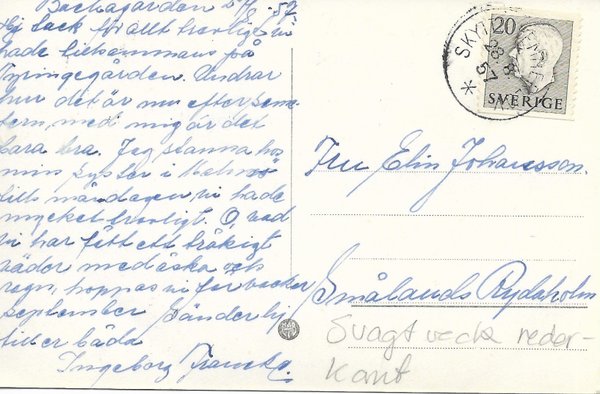 Backagården 57.
Hej tack för allt trevligt vi
hade tillsammans på
Tyringegården. Undrar
hur det är nu efter seme-
stern, med mig är det
bara bra. Jag stanna hos
min syster i
tills måndagen, vi hade
mycket trevligt. O, vad
vi har fått ett tråkigt
väder med åska och
regn, hoppas vi får vacker
september Sänder hj
till er båda
Ingeborg
20
SVERIGE
28 8 57
Fru Elin Johansson.
Smålands Rydaholm
Svagt veck neder-
kant